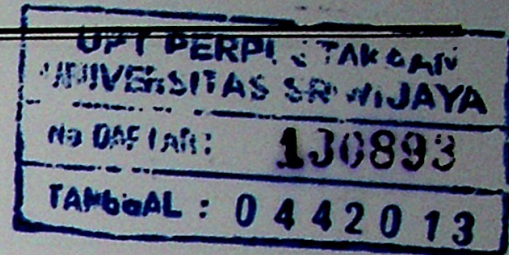 UPT PERPUSTAKAAN
UNIVERSITAS SRIWIJAYA
No DAFTAR: 130893
TANGGAL : 0 4 4 2 0 1 3